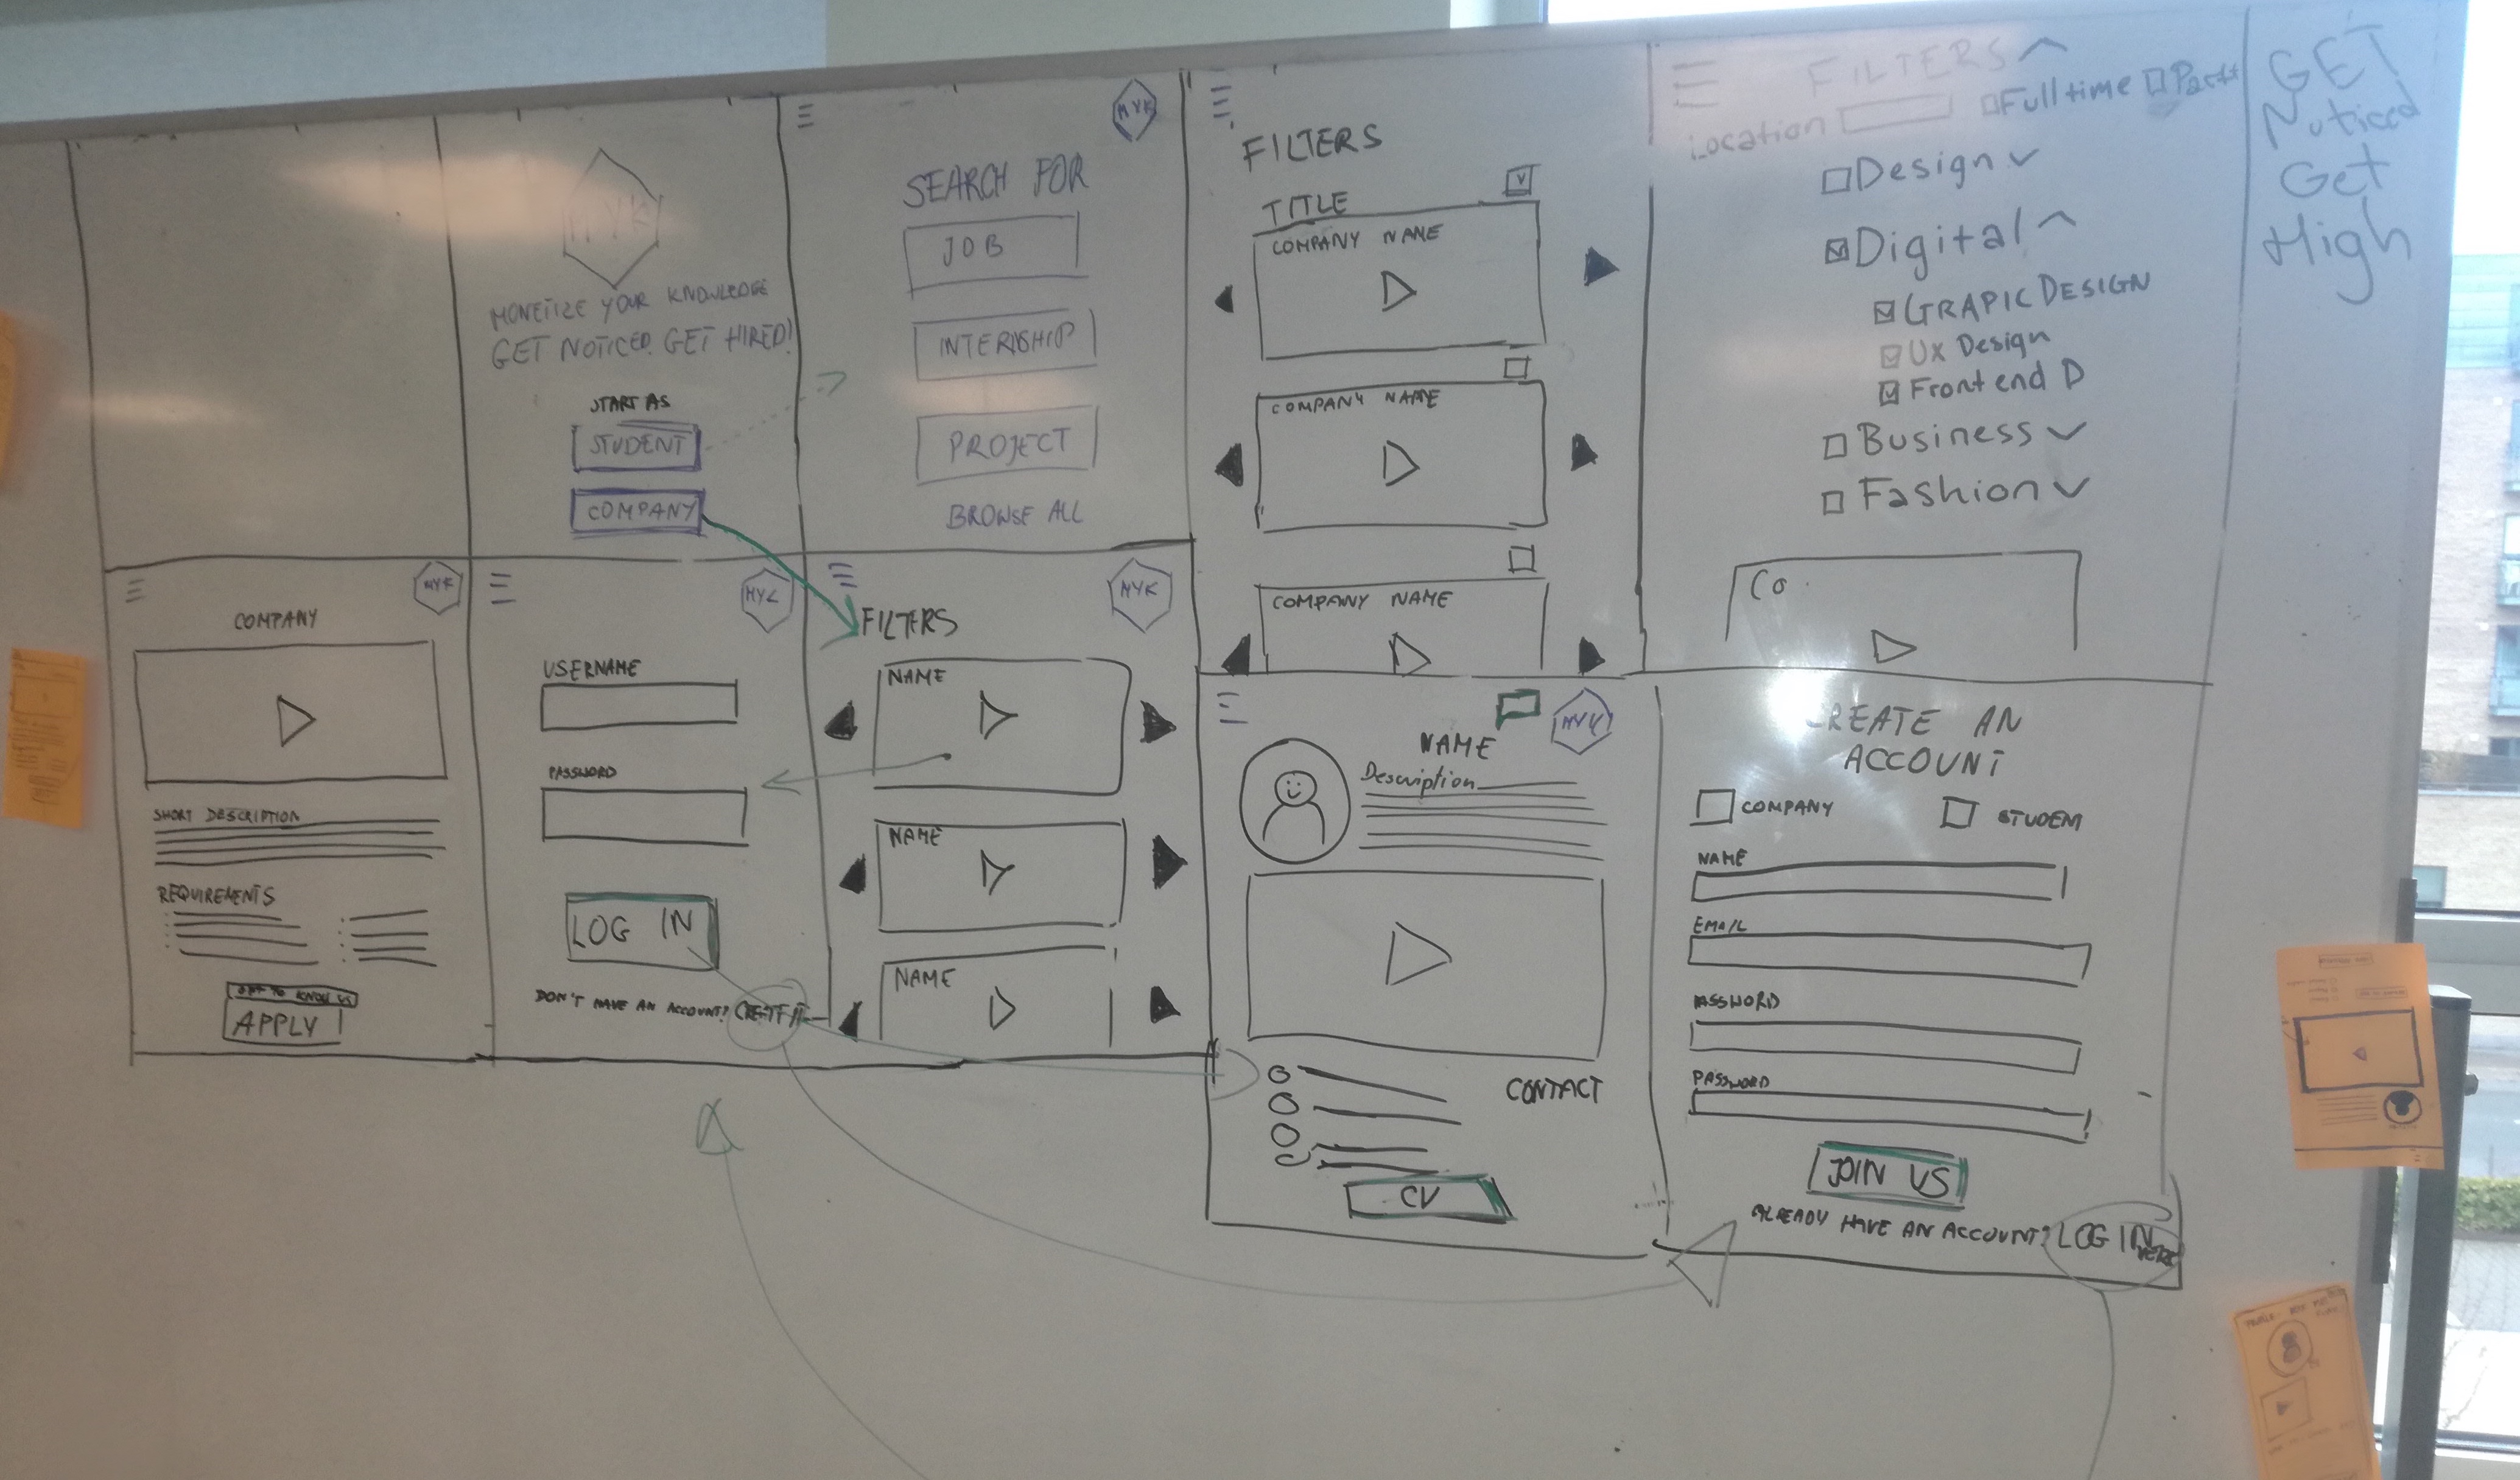 MYK
MONETIZE YOUR KNOWLEDGE
GET NOTICED. GET HIRED!
START AS
STUDENT
COMPANY
MYK
SEARCH FOR
JOB
INTERNSHIP
PROJECT
BROWSE ALL
FILTERS
TITLE
COMPANY NAME
COMPANY NAME
COMPANY NAME
FILTERS
Location
Full time
Part
Design
Digital
GRAPIC DESIGN
Ux Design
Front end D
Business
Fashion
Co
GET
Noticed
Get
High
MYK
COMPANY
SHORT DESCRIPTION
REQUIREMENTS
GET TO KNOW US
APPLY
MYK
USERNAME
PASSWORD
LOG IN
DON'T HAVE AN ACCOUNT? CREATE IT
MYK
FILTERS
NAME
NAME
NAME
MYK
NAME
Description
CONTACT
CV
CREATE AN
ACCOUNT
COMPANY
STUDENT
NAME
EMAIL
PASSWORD
PASSWORD
JOIN US
ALREADY HAVE AN ACCOUNT? LOG IN HERE